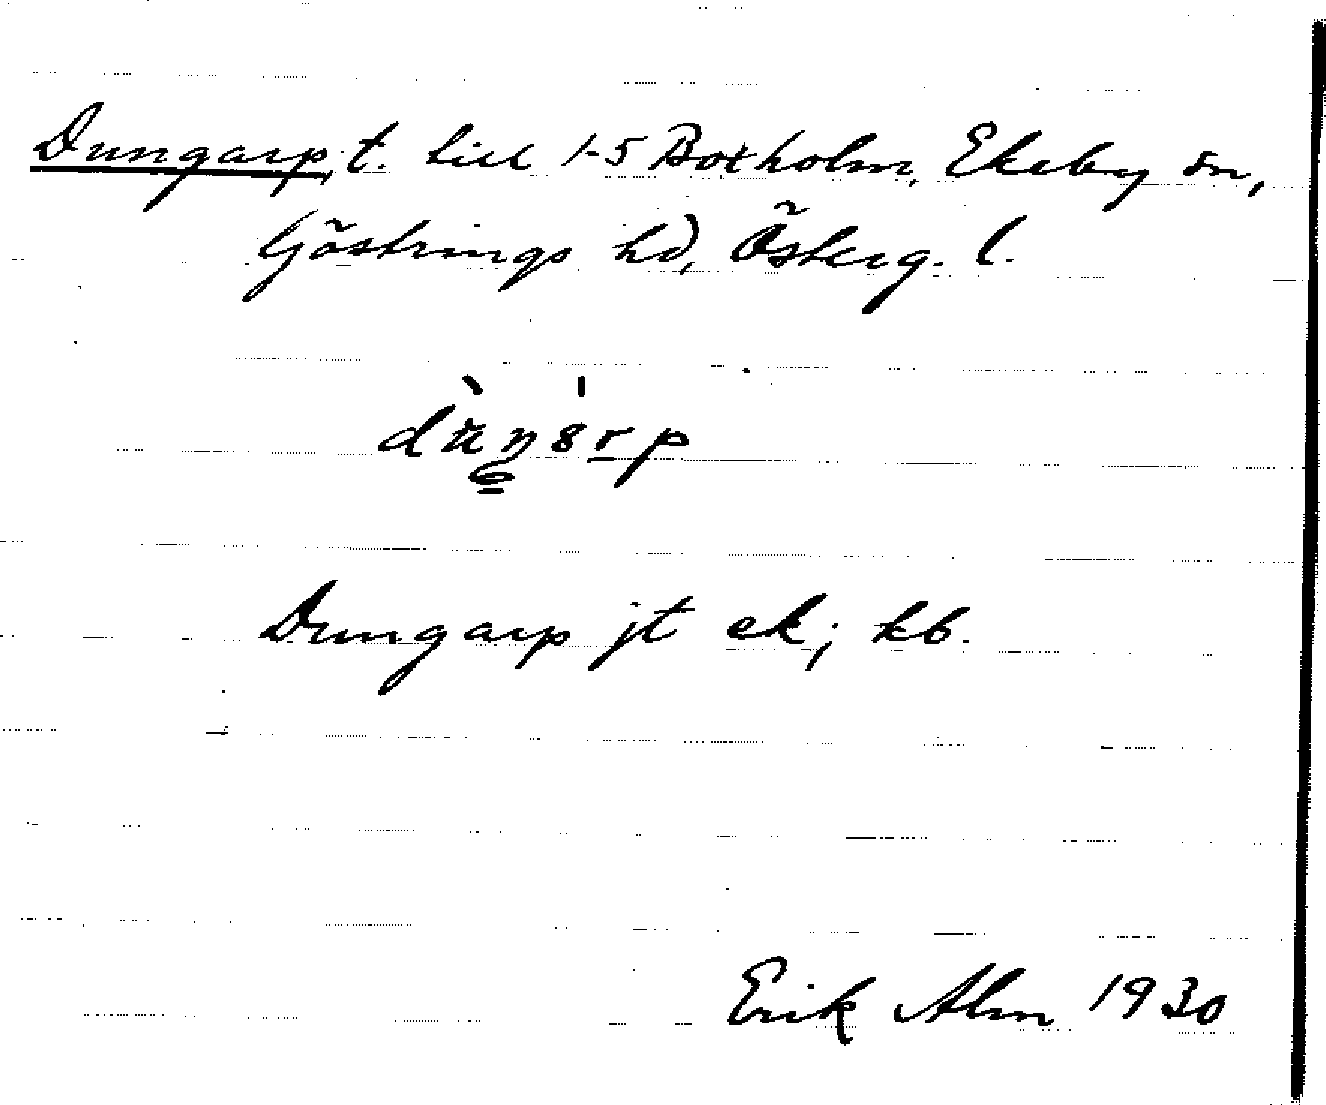 Dungarp, t. till 1-5 Boxholm, Ekeby sn,
Göstrings hd, Österg. l.
Dungarp jt ek; kb.
Erik Alm 1930